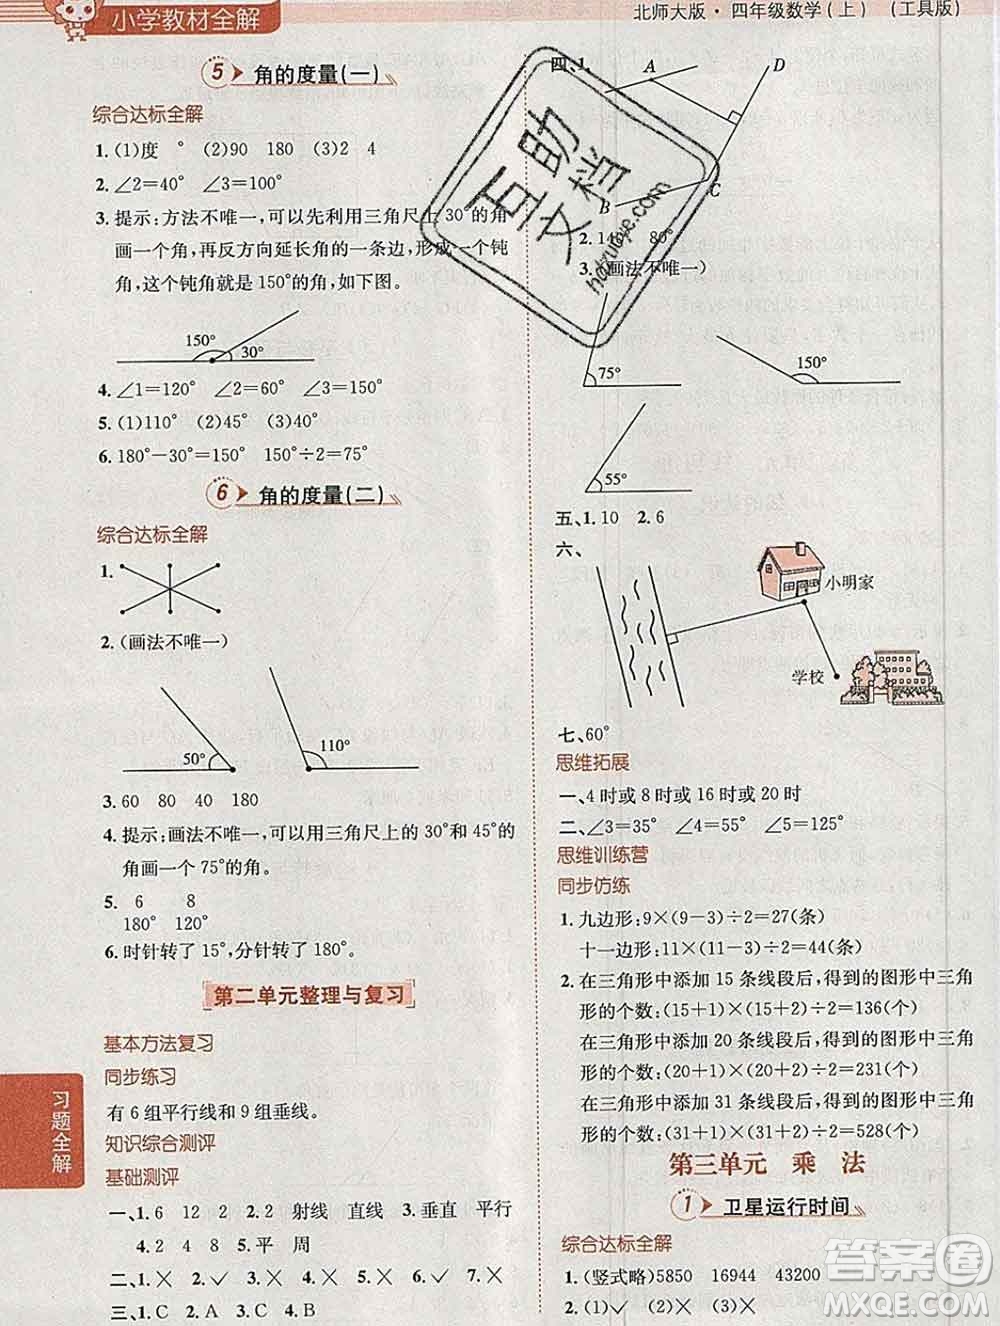 小学教材全解
北师大版·四年级数学(上) (工具版)
5 角的度量(一)
综合达标全解
1. (1)度 ° (2)90 180 (3)2 4
2. ∠2=40° ∠3=100°
3. 提示:方法不唯一,可以先利用三角尺上30°的角
画一个角,再反方向延长角的一条边,形成一个钝
角,这个钝角就是150°的角,如下图。
150°
30°
4. ∠1=120° ∠2=60° ∠3=150°
5. (1)110° (2)45° (3)40°
6. 180°-30°=150° 150°÷2=75°
6 角的度量(二)
综合达标全解
1.
2. (画法不唯一)
50°
110°
3. 60 80 40 180
4. 提示:画法不唯一,可以用三角尺上的30°和45°的
角画一个75°的角。
5. 6 8
180° 120°
6. 时针转了15°,分针转了180°。
第二单元整理与复习
基本方法复习
同步练习
有6组平行线和9组垂线。
知识综合测评
基础测评
一、1. 6 12 2 2. 2 射线 直线 3. 垂直 平行
4. 2 4 8 5. 平 周
二、1. ✓ 2. ✕ 3. ✕ 4. ✕ 5. ✓
三、1. C 2. A 3. C 4. B
习题全解
四、1.
A
D
B
C
2. 80°
3. (画法不唯一)
75°
150°
55°
五、1. 10 2. 6
六、
小明家
学校
七、60°
思维拓展
一、4时或8时或16时或20时
二、∠3=35° ∠4=55° ∠5=125°
思维训练营
同步仿练
1. 九边形:9×(9-3)÷2=27(条)
十一边形:11×(11-3)÷2=44(条)
2. 在三角形中添加15条线段后,得到的图形中三角
形的个数:(15+1)×(15+2)÷2=136(个)
在三角形中添加20条线段后,得到的图形中三角
形的个数:(20+1)×(20+2)÷2=231(个)
在三角形中添加31条线段后,得到的图形中三角
形的个数:(31+1)×(31+2)÷2=528(个)
第三单元 乘 法
1 卫星运行时间
综合达标全解
1. (竖式略)5850 16944 43200
2. (1)✓ (2)✕ (3)✕
互助文档
hdzuoye.com
答案圈
MXQE.COM